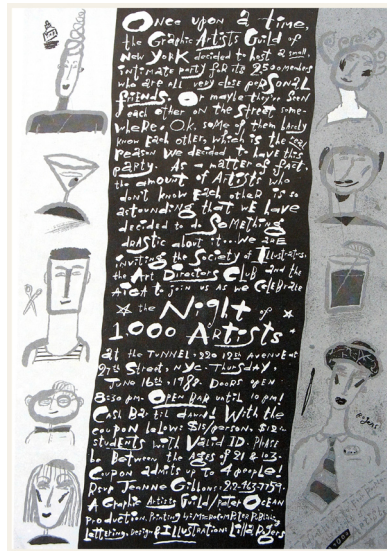 Once upon a time,
the Graphic Artists Guild of
New York decided to host a small,
intimate party for its 2500 members
who are all very close personal
friends. Or maybe they've seen
each other on the street some-
where. O.K. some of them hardly
know each other, which is the real
reason we decided to have this
party. As a matter of fact,
the amount of Artists who
don't know each other is so
astounding that we have
decided to do something
drastic about it... We are
inviting the Society of Illustrators,
the Art Directors Club and the
AIGA to join us as we celebrate
the Night of
1,000 Artists
at the Tunnel • 220 12th Avenue at
27th Street, NYC • Thursday,
June 16th, 1988. Doors open
8:30 pm. Open Bar until 10 pm!
Cash Bar til dawn! With the
coupon below: $15/person. $12
students with valid ID. Please
be between the ages of 21 & 103.
Coupon admits up to 4 people!
RSVP Jeanne Gibbons:
A Graphic Artists Guild/Peter Ocean
Production. Printing by:
Lettering, Design & Illustration: Lilla Rogers
Rogers